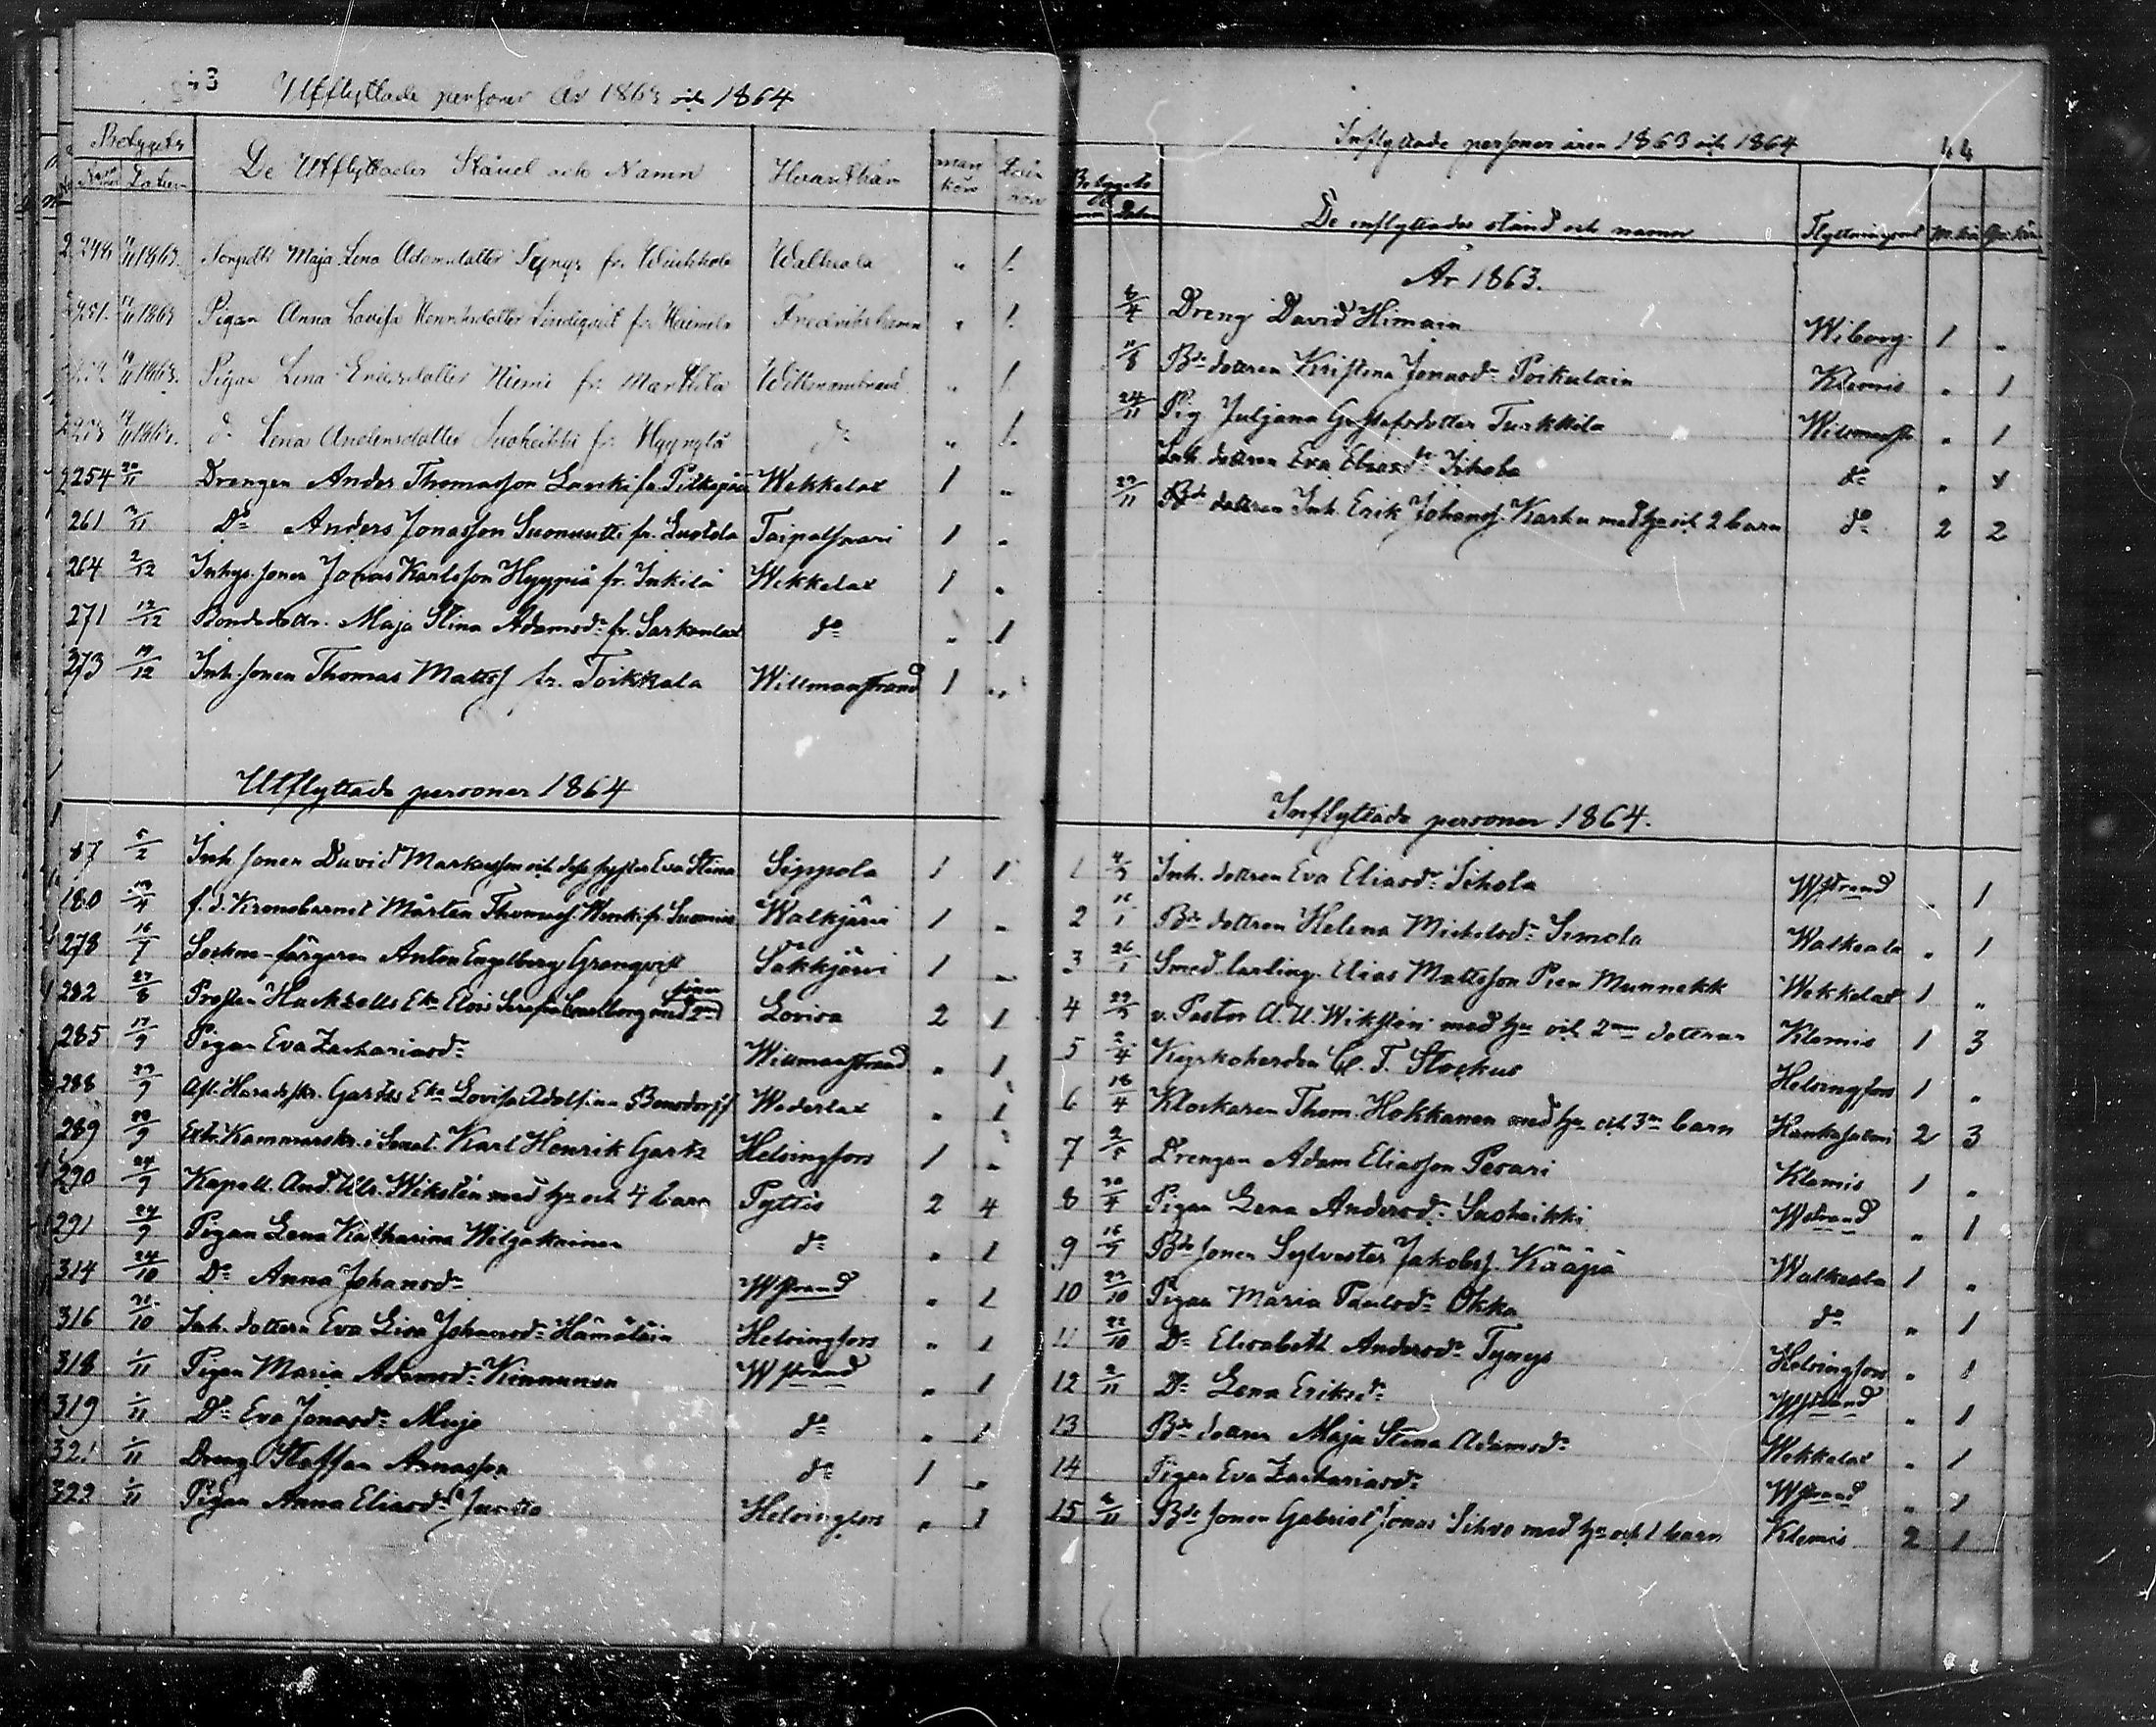 43 Utflyttade personer år 1863 och 1864
Betygets
De Utflyttades Stånd och Namn
Hvarthän
man kön
Datum
1863. Maja Lena Adamsdatter Tynys fr. Walkeala " 1.
251. 1863 Pigan Anna Lovisa Henriksdatter Lindqvist fr. Fredrikshamn " 1.
1863. Pigan Lena Ericsdatter Niemi fr. Marttila Willmanstrand " 1
1863. do Lena Andersdatter Suoheikki fr. Hyyrylä do " 1.
254 20/11 Drengen Anders Thomasson Lanki fr. Wekkelax 1 "
261 Do Anders Jonasson Suomuutti fr. Taipalsaari 1 "
264 2/12 Inhys. sonen Jonas Karlsson Hyypiä fr. Inkilä Wekkelax 1 "
271 12/12 Bondedottr. Maja Stina Adamsdr fr. Sarkalax do " 1
273 19/12 Inh. sonen Thomas Mattss fr. Toikkala Willmanstrand 1 "
Utflyttade personer 1864
87 5/2 Inh. sonen David Markusson och dess syster Eva Stina Sippola 1 1
180 19/4 f. d. Kronobarnet Mårten Thomass. fr. Walkjärvi 1 "
278 16/7 Socknefärgaren Anton Engelberg Granqvist Säkkjärvi 1 "
282 27/8 Prosten Hackzells Eka med 2ne söner Lovisa 2 1
285 17/9 Pigan Eva Zachariasdr Willmanstrand " 1
288 23/9 Afl. Häradsskr. Gartzs Eka Lovisa Adolfina Bonsdorff Wederlax " 1
289 Extr. Kammarskr. i Senat. Karl Henrik Gartz Helsingfors 1 "
290 24/9 Kapell. And. Ulr. Wikstén med hu och 4 barn Pyttis 2 4
291 24/9 Pigan Lena Katharina Wiljakainen do " 1
314 24/10 Do Anna Johansdr Wstrand " 1
316 Inh. dottern Eva Lisa Johansdr Hämäläin Helsingfors " 1
318 1/11 Pigan Maria Adamsdr Kinnunen Wstrand " 1
319 1/11 Do Eva Jonasdr Muje do " 1
321 1/11 Dreng Staffan Arnasson do 1 "
322 1/11 Pigan Anna Eliasdr Helsingfors " 1
Inflyttade personer åren 1863 och 1864 44
Betygets
Datum De inflyttades stånd och namn Flyttningsort
År 1863.
6/4 Dreng David Himain Wiborg 1 "
11/8 Bde dottren Kristina Jonasdr Poikulain Klemis " 1
24/11 Pig. Juljana Gustafsdotter Turkkila Willmanst " 1
Inh. dottren Eva Eliasdr Sihola do "
29/11 Inh. Erik Johanss. Karhu med hu och 2 barn do 2 2
Inflyttade personer 1864.
1 Inh. dottren Eva Eliasdr Sihola Wstrand " 1
2 Bde dottren Helena Michelsdr Simola Walkeala " 1
3 26/1 Smed lärling. Elias Mattsson Pien Munnekk Wekkelax 1 "
4 v. Pastor A. U. Wikstén med hu och 2ne döttrar Klemis 1 3
5 Kyrkoherden C. T. Stockus Helsingfors 1 "
6 18/4 Klockaren Thom. Hokkanen med hu och 3ne barn Kankasalmi 2 3
7 Drengen Adam Eliasson Pesari Klemis 1 "
8 30/4 Pigan Lena Andersdr Suoheikki Wstrand " 1
9 16/9 Bde sonen Sylvester Jakobss. Kääpä Walkeala 1 "
10 23/10 Pigan Maria Paulsdr Okka do " 1
11 22/10 Do Elisabeth Andersdr Tynys Helsingfors " 1
12 2/11 Do Lena Eriksdr Wstrand " 1
13 Bde dottren Maja Stina Adamsdr Wekkelax " 1
14 Pigan Eva Zachariasdr Wstrand " 1
15 6/11 Bde sonen Gabriel Jonas Sihvo med hu och 1 barn Klemis 2 1